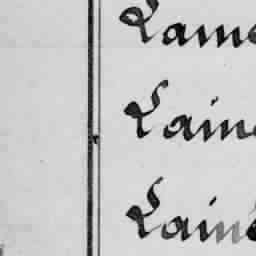 Laine
Laine
Laine